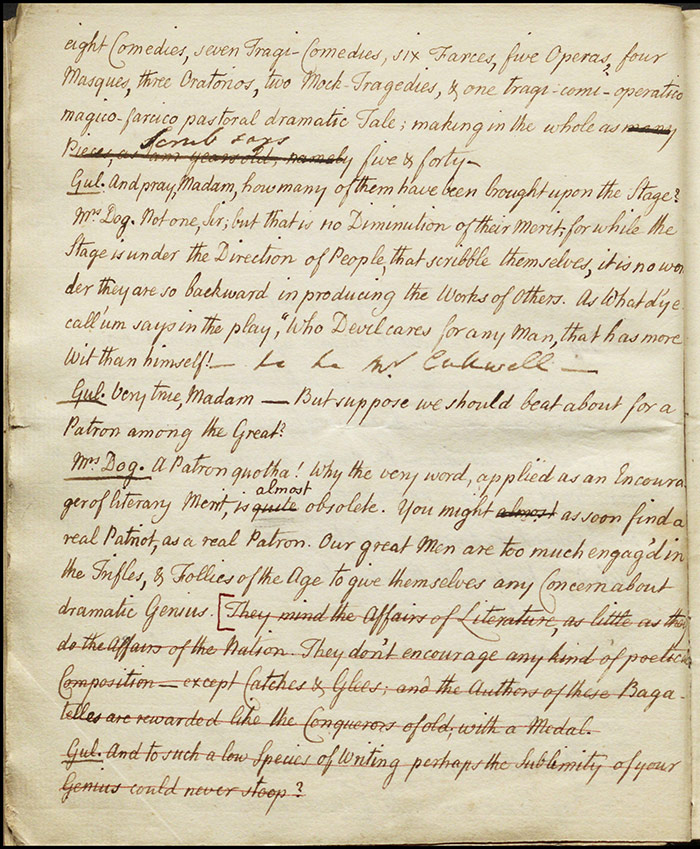 eight Comedies, seven Tragi-Comedies, six Farces, five Operas, four
Masques, three Oratorios, two Mock-Tragedies, & one tragi-comi-operatico
magico-farcico pastoral dramatic Tale; making in the whole as many
Scrub says
Pieces, as I am years old, namely five & forty—
Gul. And pray, Madam, how many of them have been brought upon the Stage?
Mrs Dog. Not one, Sir; but that is no Diminution of their Merit; for while the
Stage is under the Direction of People, that scribble themselves, it is no won
der they are so backward in producing the Works of Others. As What d'ye
call'um says in the play, "Who Devil cares for any Man, that has more
Wit than himself!—
Gul. Very true, Madam — But suppose we should beat about for a
Patron among the Great?
Mrs Dog. A Patron quotha! Why the very word, applied as an Encoura
almost
ger of literary Merit, is quite obsolete. You might almost as soon find a
real Patriot, as a real Patron. Our great Men are too much engag'd in
the Trifles, & Follies of the Age to give themselves any Concern about
dramatic Genius. [They mind the Affairs of Literature, as little as they
do the Affairs of the Nation. They don't encourage any kind of poetical
Composition — except Catches & Glees; and the Authors of these Baga-
telles are rewarded like the Conquerors of old, with a Medal.
Gul. And to such a low Species of Writing perhaps the Sublimity of your
Genius could never stoop?